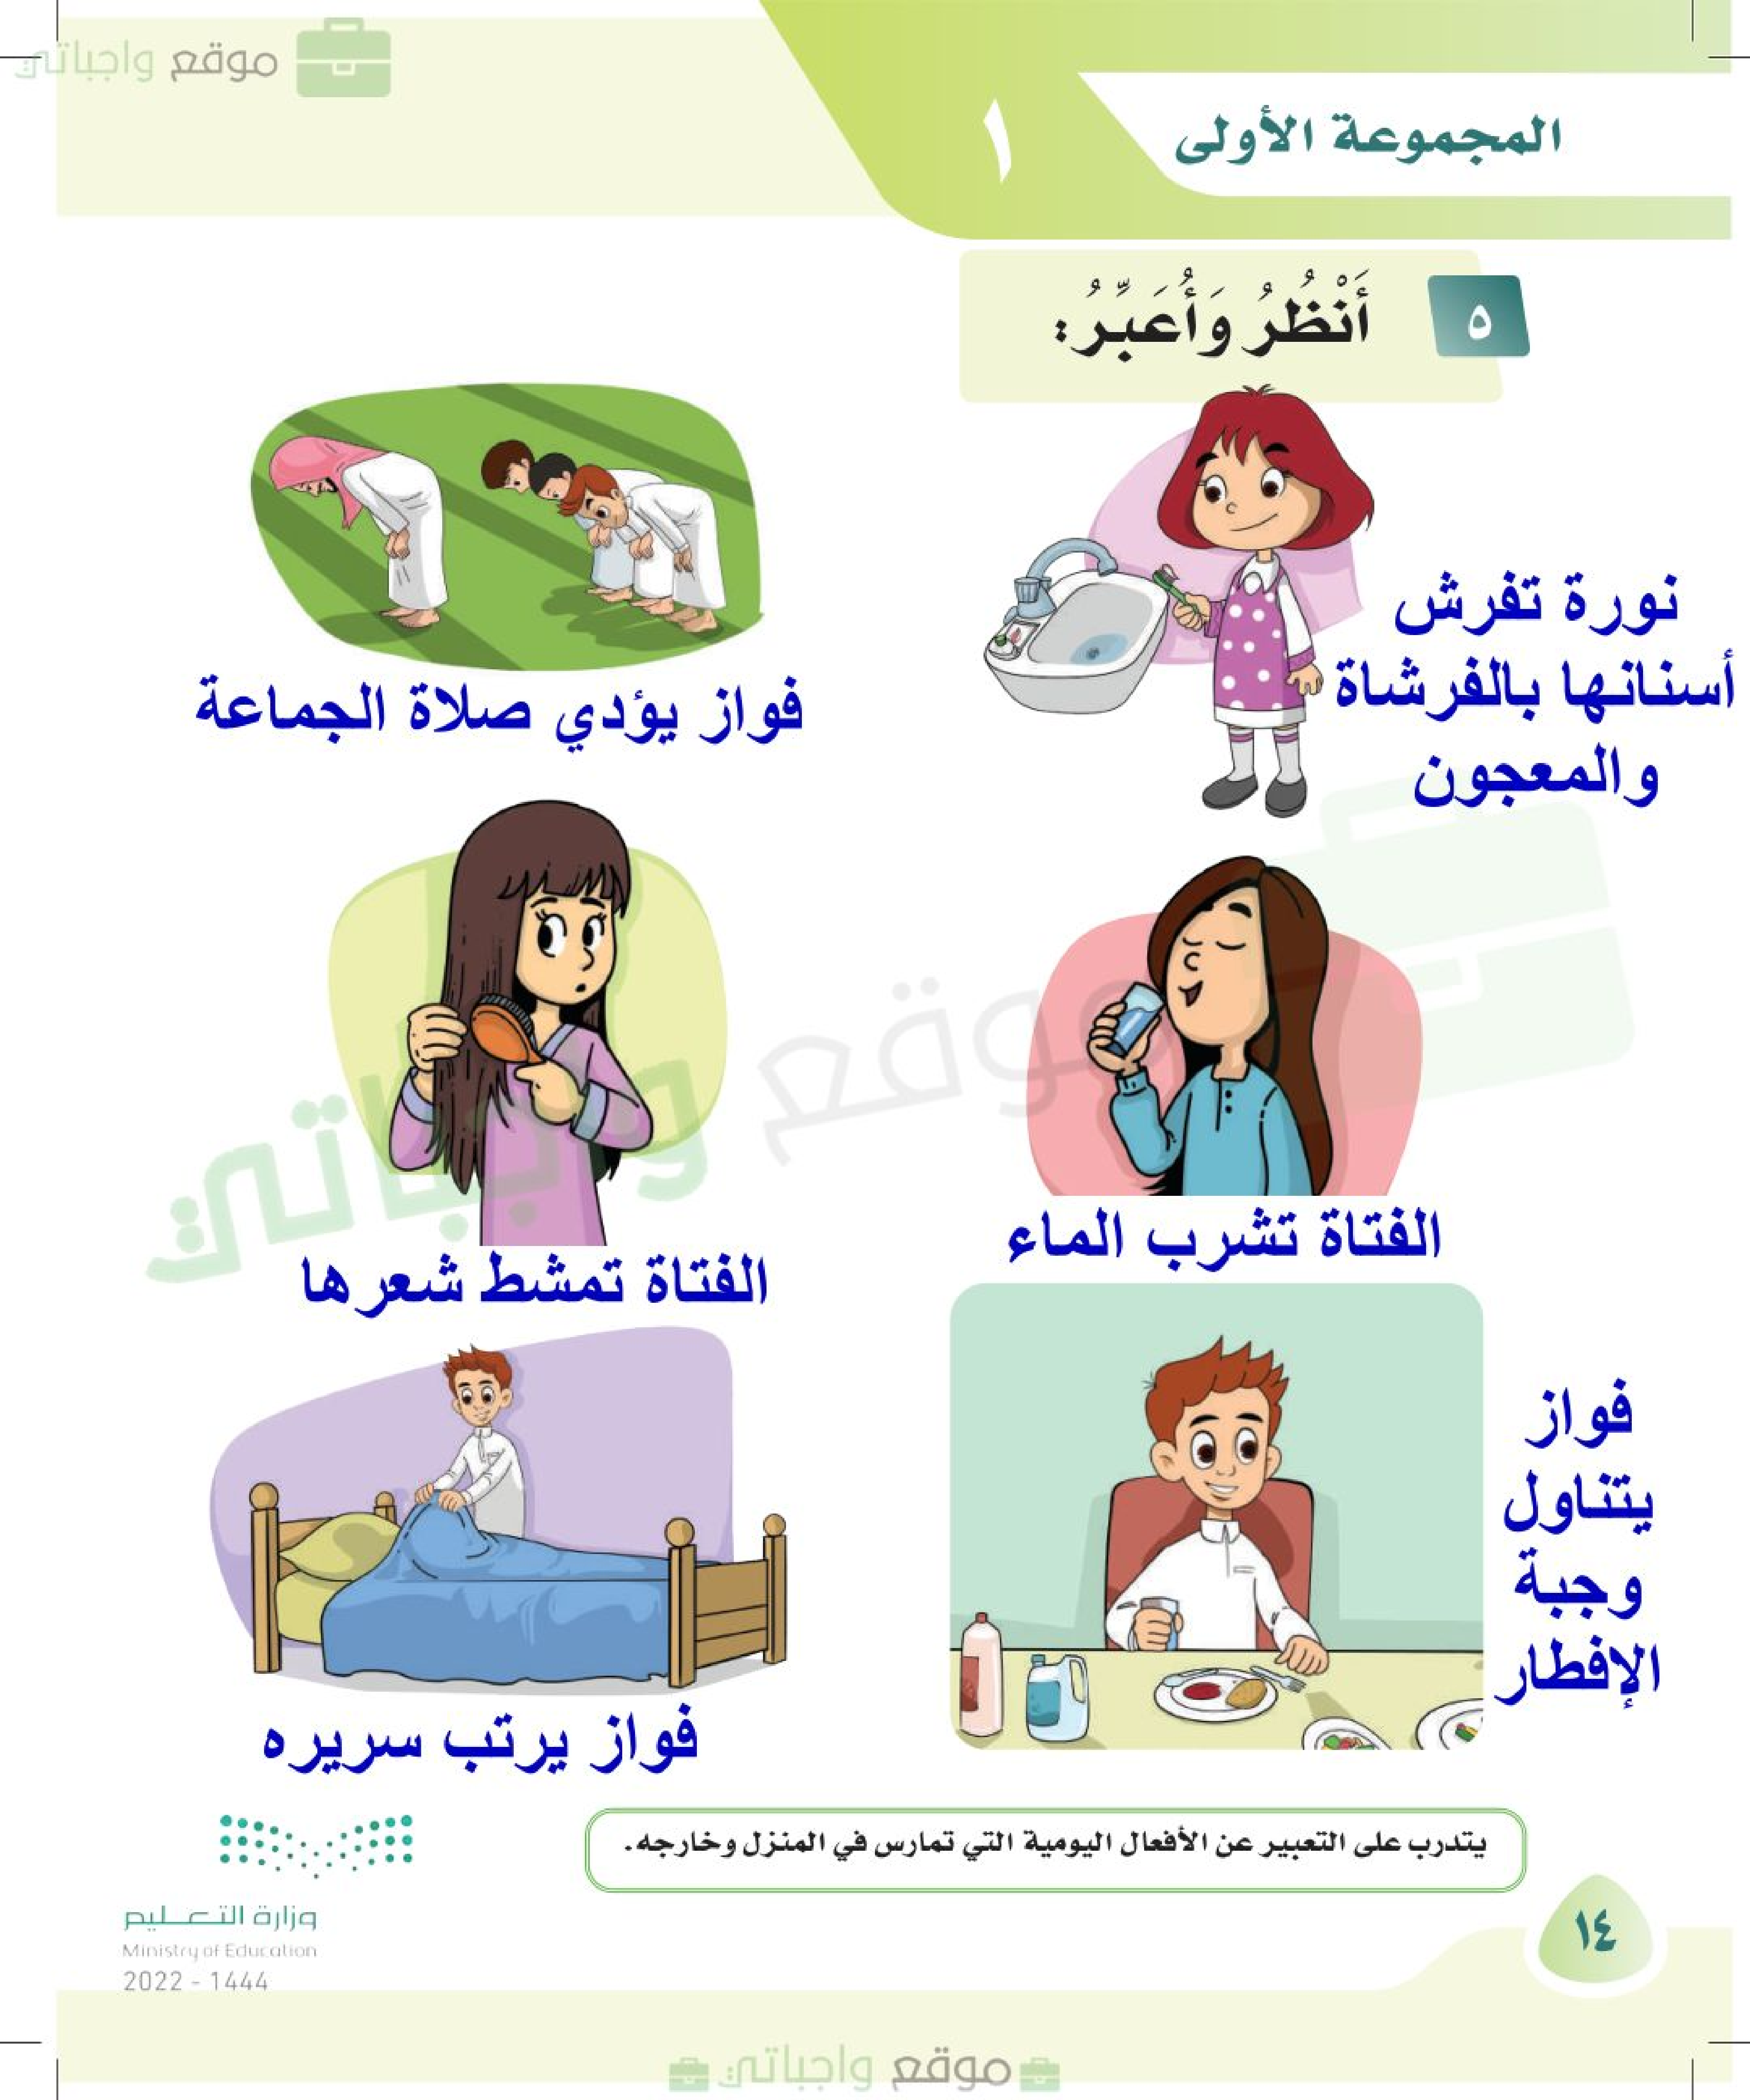 موقع واجباتي
المجموعة الأولى
١
٥
أَنْظُرُ وَأُعَبِّرُ:
نورة تفرش
أسنانها بالفرشاة
والمعجون
فواز يؤدي صلاة الجماعة
الفتاة تشرب الماء
الفتاة تمشط شعرها
موقع واجباتي
فواز
يتناول
وجبة
الإفطار
فواز يرتب سريره
يتدرب على التعبير عن الأفعال اليومية التي تمارس في المنزل وخارجه.
وزارة التعليم
Ministry of Education
2022 - 1444
١٤
موقع واجباتي